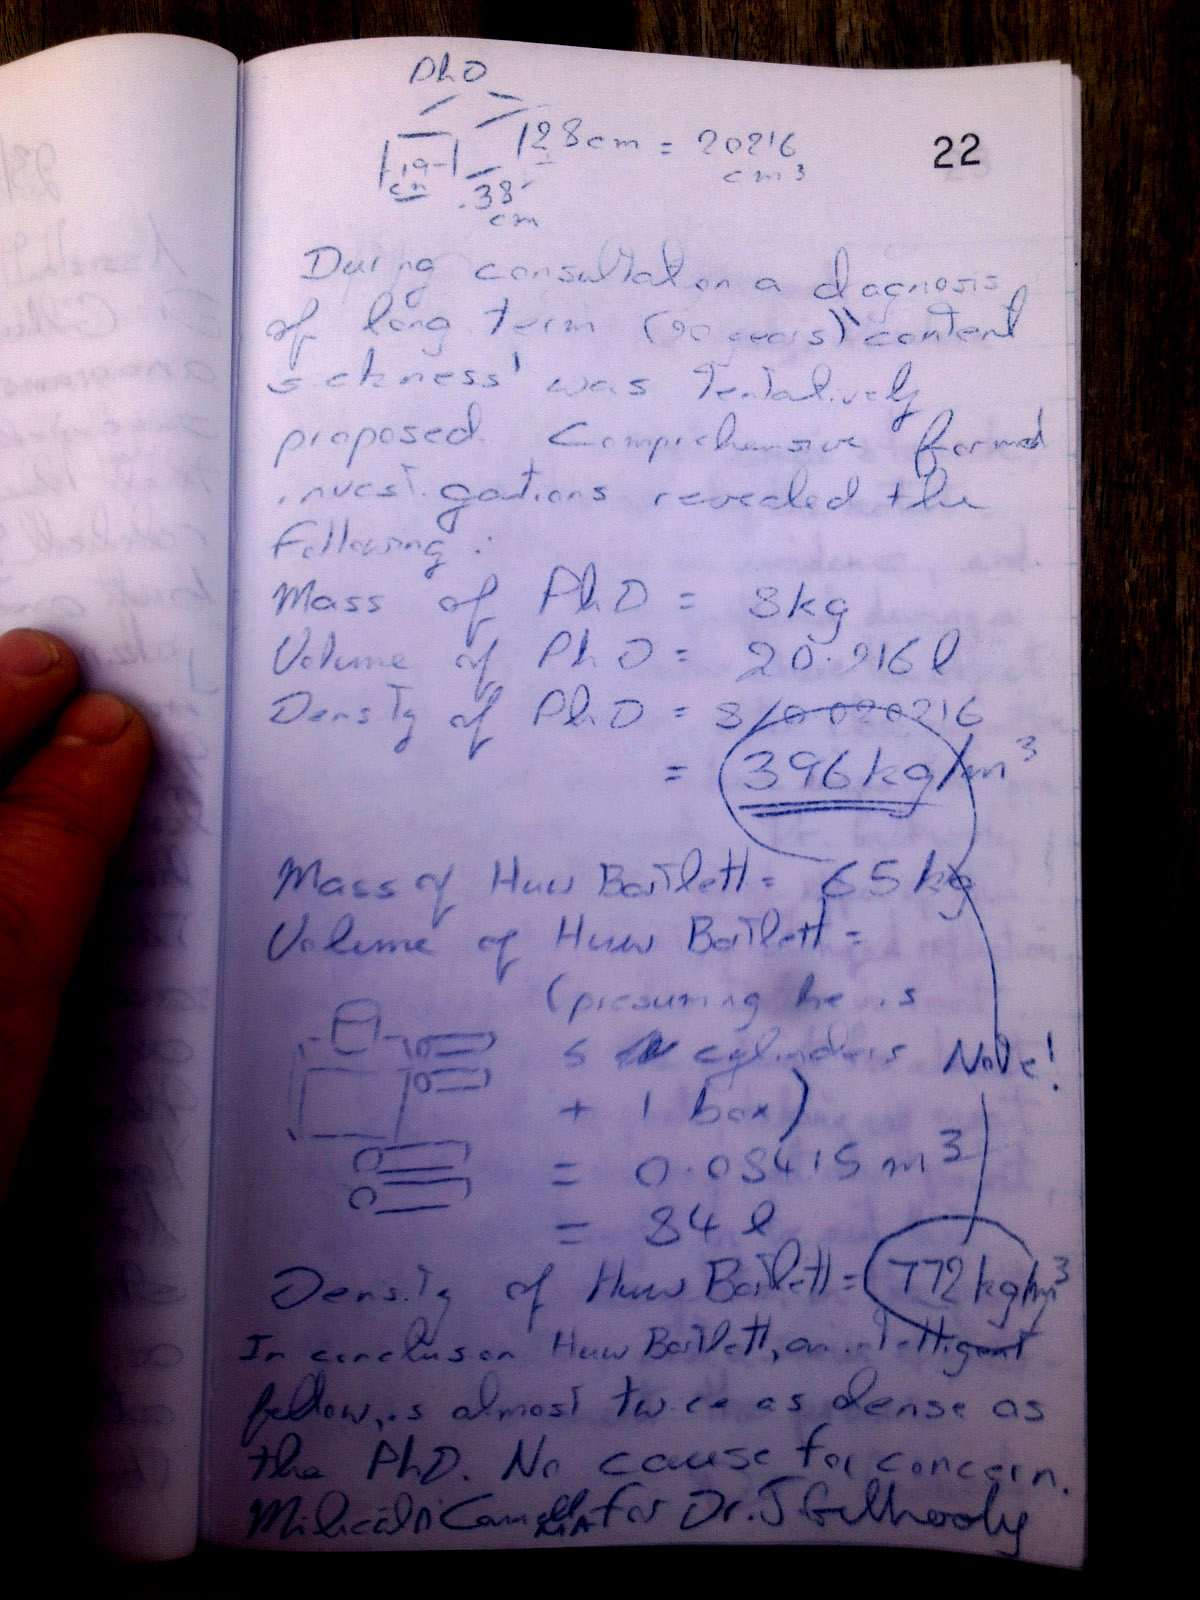 PhD
28cm = 20216
cm³
19
cm
38
cm
22
During consultation a diagnosis
of long term (20 years) 'content
sickness' was tentatively
proposed. Comprehensive formal
investigations revealed the
following:
Mass of PhD = 8kg
Volume of PhD = 20.216 l
Density of PhD = 8/0.020216
= 396kg/m³
Mass of Huw Bartlett = 65kg
Volume of Huw Bartlett =
(presuming he is
5 cylinders
Note!
+ 1 box)
= 0.08415 m³
= 84 l
Density of Huw Bartlett = 772kg/m³
In conclusion Huw Bartlett, an intelligent
fellow, is almost twice as dense as
the PhD. No cause for concern.
for Dr. J Gilhooly